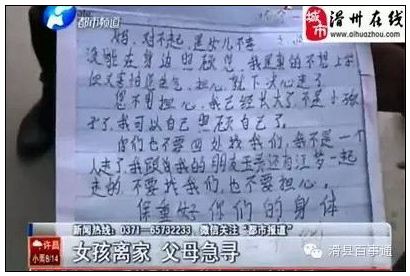 都市频道
城市
滑州在线
www.aihuazhou.com
妈，对不起，是女儿不孝
没能在身边照顾您，我是真的不想上学
但又害怕您生气，担心，就下决心走了
您不用担心，我已经长大了，不是小孩
子了，我可以自己照顾自己了。
你们也不要四处找我们，我不是一个
人走了，我跟我的朋友王
还有江梦一起
走的不要找我们也不要担心。
保重好你们的身体
新闻热线：0371-65732233 微信关注“都市报道”
许昌
小雨8/14
女孩离家 父母急寻
滑县百事通